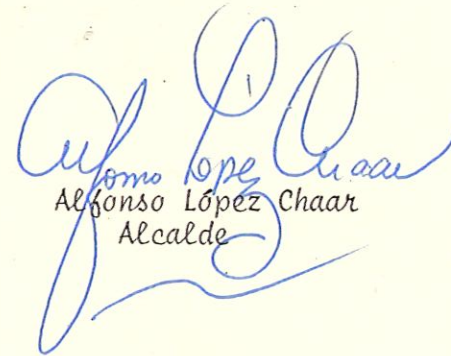 Alfonso López Chaar
Alfonso López Chaar
Alcalde